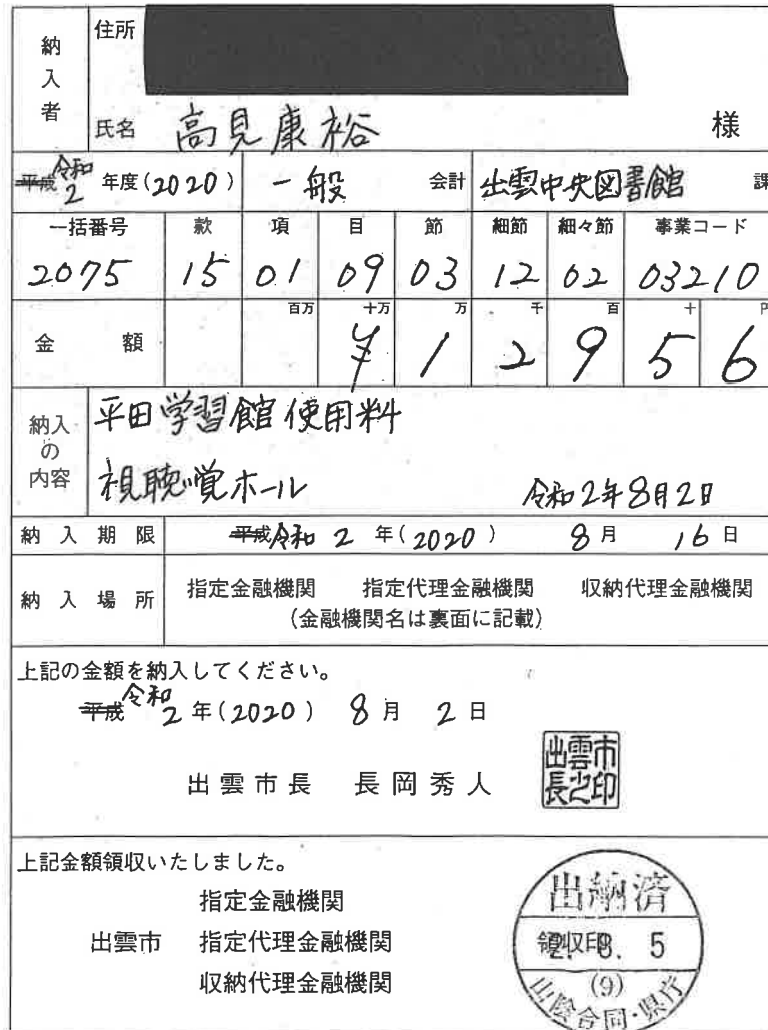 納入者
住所
氏名 高見康裕 様
平成 令和 2 年度(2020) 一般 会計 出雲中央図書館 課
一括番号 款 項 目 節 細節 細々節 事業コード
2075 15 01 09 03 12 02 03210
金額 百万 十万 万 千 百 十 円
¥12956
納入の内容
平田学習館使用料
視聴覚ホール 令和2年8月2日
納入期限 平成 令和 2 年(2020) 8月 16日
納入場所
指定金融機関 指定代理金融機関 収納代理金融機関
(金融機関名は裏面に記載)
上記の金額を納入してください。
平成 令和 2 年(2020) 8月 2日
出雲市長 長岡秀人
出雲市長之印
上記金額領収いたしました。
指定金融機関
出雲市 指定代理金融機関
収納代理金融機関
出納済
領収印 8. 5
(9)
山陰合同・県庁